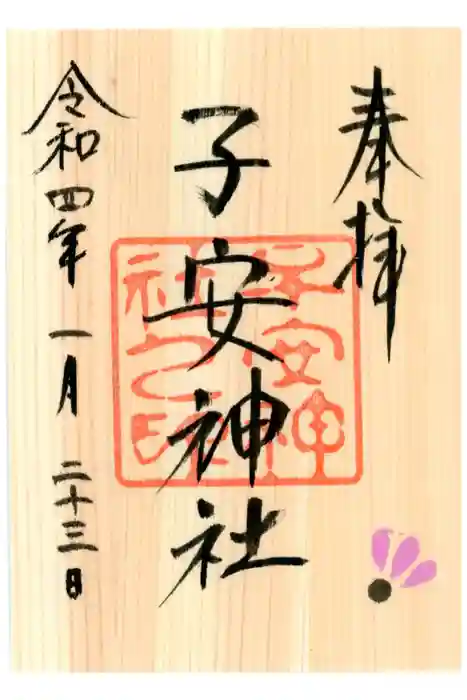 奉拝
子安神社
子安神社之印
令和四年一月二十三日